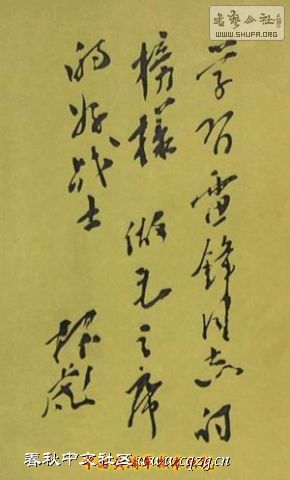 书艺公社
WWW.SHUFA.ORG
学习雷锋同志的
榜样 做毛主席
的好战士
林彪
春秋中文社区www.cqzg.cn